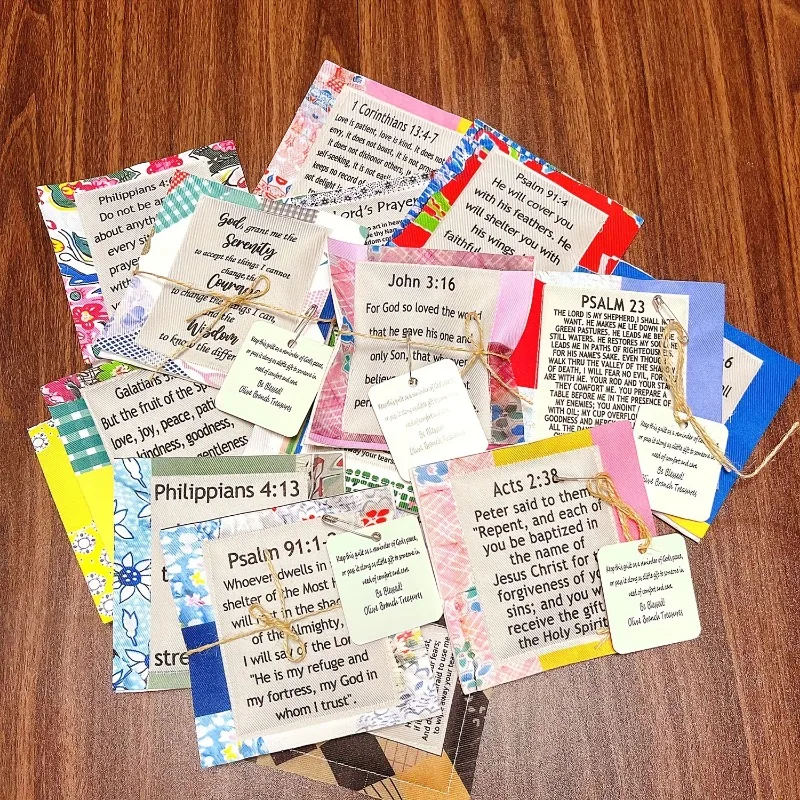 1 Corinthians 13:4-7
Love is patient, love is kind. It does not
envy, it does not boast, it is not
it does not dishonor others,
self-seeking, it is not
keeps no record of
not delight
Lord's Prayer
art in heaven
Psalm 91:4
He will cover you
with his feathers. He
will shelter you with
his wings.
faithful
Philippians 4:6
Do not be
about anything
every
prayer
with
God, grant me the
Serenity
to accept the things I cannot
change, the
Courage
to change the things I can,
and the
Wisdom
to know the
John 3:16
For God so loved the world
that he gave his one and
only Son, that whoever
PSALM 23
THE LORD IS MY SHEPHERD, I SHALL NOT
WANT. HE MAKES ME LIE DOWN IN
GREEN PASTURES. HE LEADS ME BESIDE
STILL WATERS. HE RESTORES MY SOUL. HE
LEADS ME IN PATHS OF
FOR HIS NAME'S SAKE. EVEN THOUGH I
WALK THRU THE VALLEY OF THE
OF DEATH, I WILL FEAR NO EVIL, FOR
ARE WITH ME. YOUR ROD AND YOUR
THEY COMFORT ME. YOU PREPARE A
TABLE BEFORE ME IN THE PRESENCE OF
MY ENEMIES; YOU ANOINT
WITH OIL; MY CUP
GOODNESS AND
ALL THE
6
Keep this quilt as a reminder of God's peace,
or pass it along as a little gift to someone in
need of comfort and care.
Be Blessed!
Olive Branch Treasures
Be Blessed!
Olive Branch Treasures
Keep this quilt as a reminder of God's peace,
or pass it along as a little gift to someone in
need of comfort and care.
Be Blessed!
Olive Branch Treasures
Galatians
But the fruit of the
love, joy, peace,
kindness, goodness,
gentleness
Philippians 4:13
Psalm 91:1-2
Whoever dwells in
shelter of the Most
will rest in the
of the Almighty,
I will say of the
"He is my refuge and
my fortress, my God in
whom I trust".
Keep this quilt as a reminder of God's peace,
or pass it along as a little gift to someone in
need of comfort and care.
Be Blessed!
Olive Branch Treasures
Acts 2:38
Peter said to them
"Repent, and each of
you be baptized in
the name of
Jesus Christ for
forgiveness of
sins; and you
receive the gift
the Holy Spirit
Keep this quilt as a reminder of God's peace,
or pass it along as a little gift to someone in
need of comfort and care.
Be Blessed!
Olive Branch Treasures